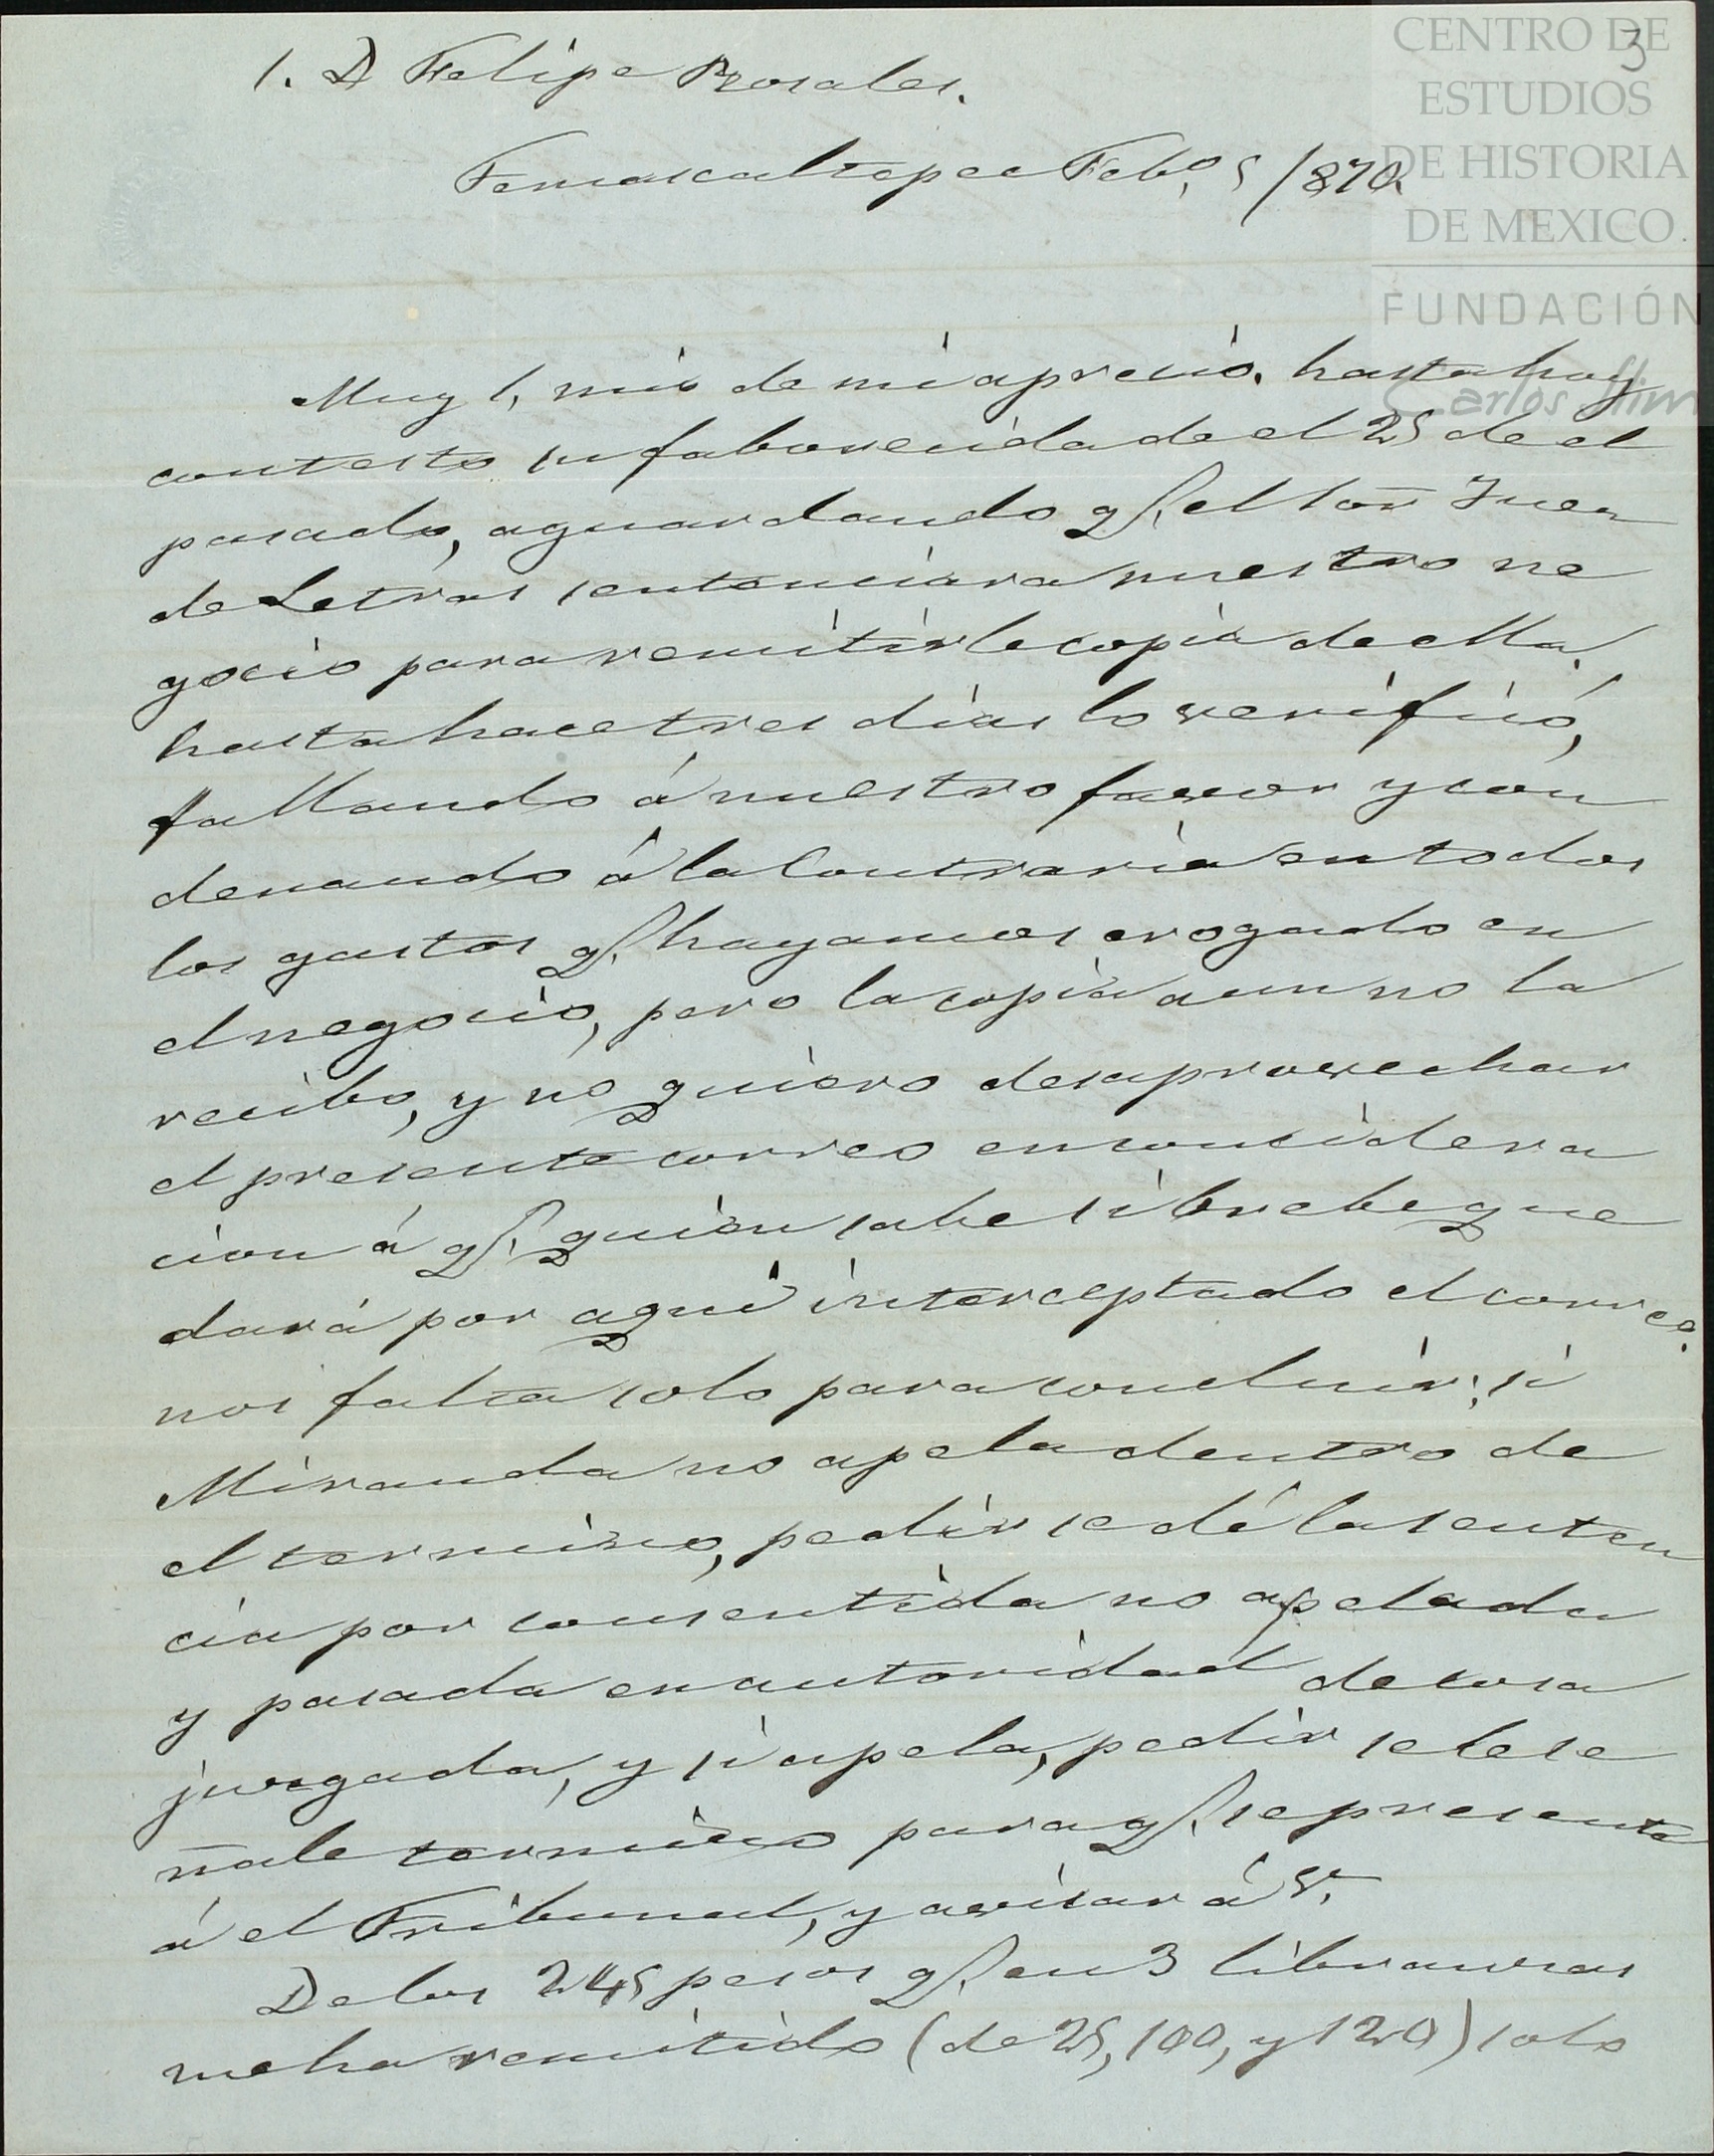 3
S. D Felipe Rosales.
Temascaltepec Feb.o 5/870.
CENTRO DE
ESTUDIOS
DE HISTORIA
DE MEXICO.
FUNDACIÓN
Carlos Slim
Muy S, mio de mi aprecio. hasta hoy
contesto su faborecida de el 25 de el
pasado, aguardando q. el Sōr Juez
de Letras sentenciara nuestro ne
gocio para remitirle copia de ella.
hasta hace tres dias lo verificó,
fallando á nuestro favor y con
denando á la Contraria en todos
los gastos q. hayamos erogado en
el negocio, pero la copia aun no la
recibo, y no quiero desaprovechar
el presente correo en considera
cion á q. quien sabe si brebe que
dará por aquí interceptado el correo.
nos falta solo para concluir; si
Miranda no apela dentro de
el termino, pedir se dé la senten
cia por consentida no apelada
y pasada en autoridad de cosa
juzgada, y si apela, pedir se le se
ñale termino para q. se presente
á el Tribunal, y avisar á V.
De los 245 pesos q. en 3 libranzas
me ha remitido (de 25, 100, y 120) solo